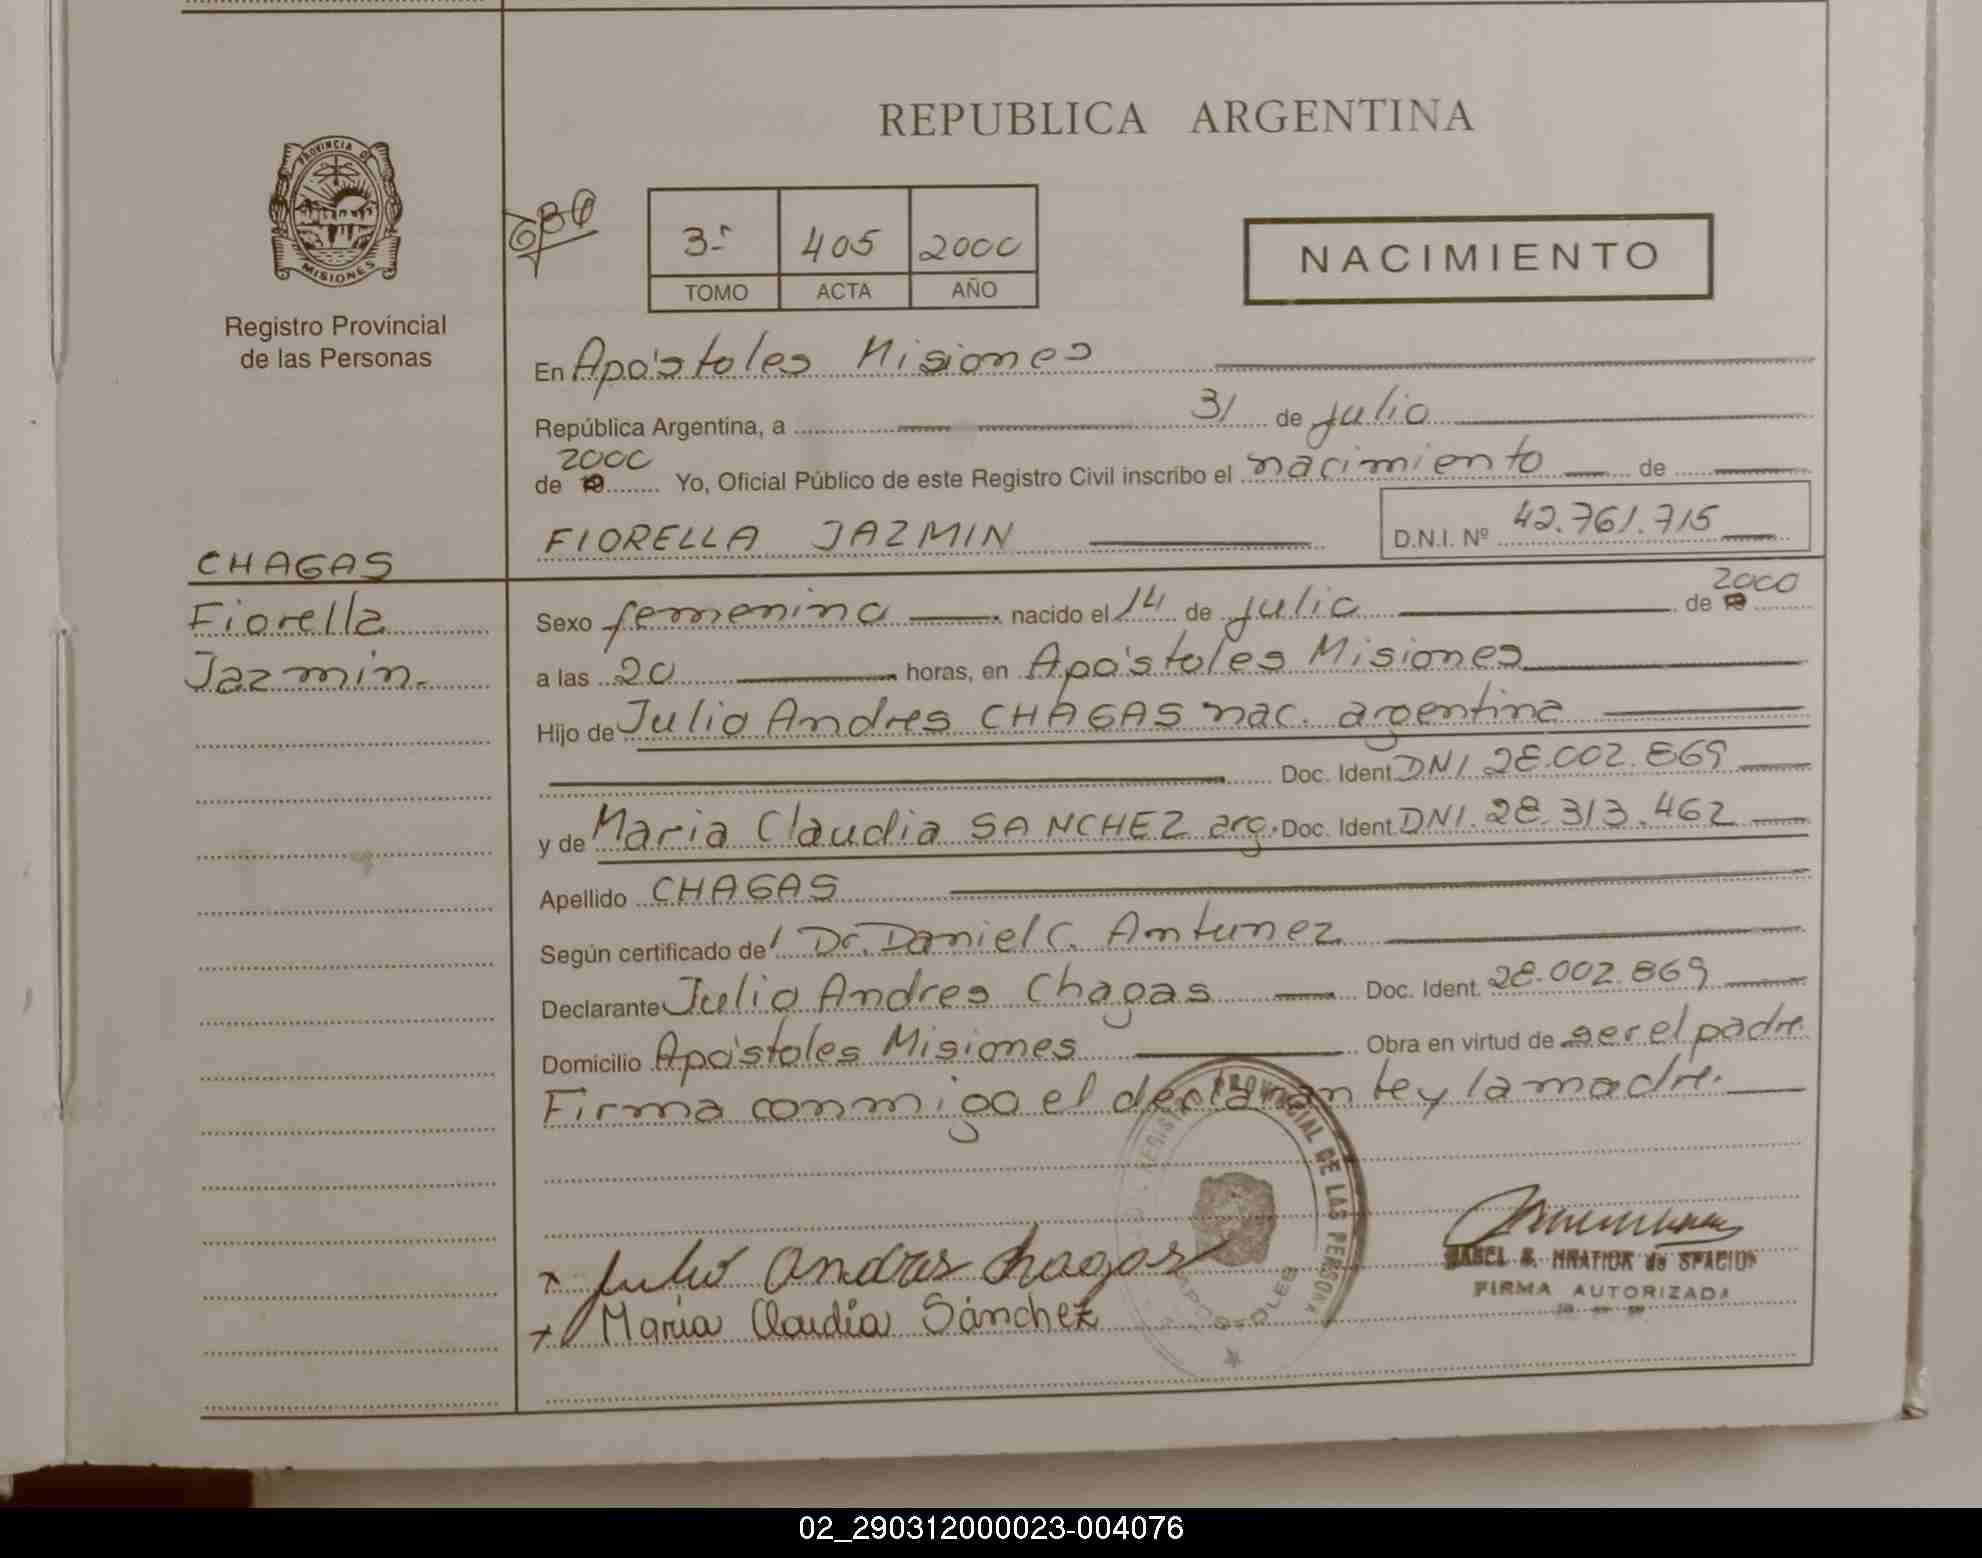 REPUBLICA ARGENTINA
PROVINCIA DE
MISIONES
Registro Provincial
de las Personas
3º 405 2000
TOMO ACTA AÑO
NACIMIENTO
En Apóstoles Misiones
República Argentina, a 31 de julio
2000
de 19 Yo, Oficial Público de este Registro Civil inscribo el nacimiento de
FIORELLA JAZMIN D.N.I. Nº 42.761.715
CHAGAS
Fiorella
Jazmin.
2000
Sexo femenino nacido el 14 de julio de 19
a las 20 horas, en Apóstoles Misiones
Hijo de Julio Andres CHAGAS nac. argentina
Doc. Ident. DNI 28.002.869
y de Maria Claudia SANCHEZ arg. Doc. Ident. DNI. 28.313.462
Apellido CHAGAS
Según certificado del Dr. Daniel C. Antunez
Declarante Julio Andres Chagas Doc. Ident. 28.002.869
Domicilio Apóstoles Misiones Obra en virtud de ser el padre.
Firma conmigo el declarante y la madre.
REGISTRO PROVINCIAL DE LAS PERSONAS
APOSTOLES
Julio Andres Chagas
María Claudia Sánchez
FIRMA AUTORIZADA
02_290312000023-004076